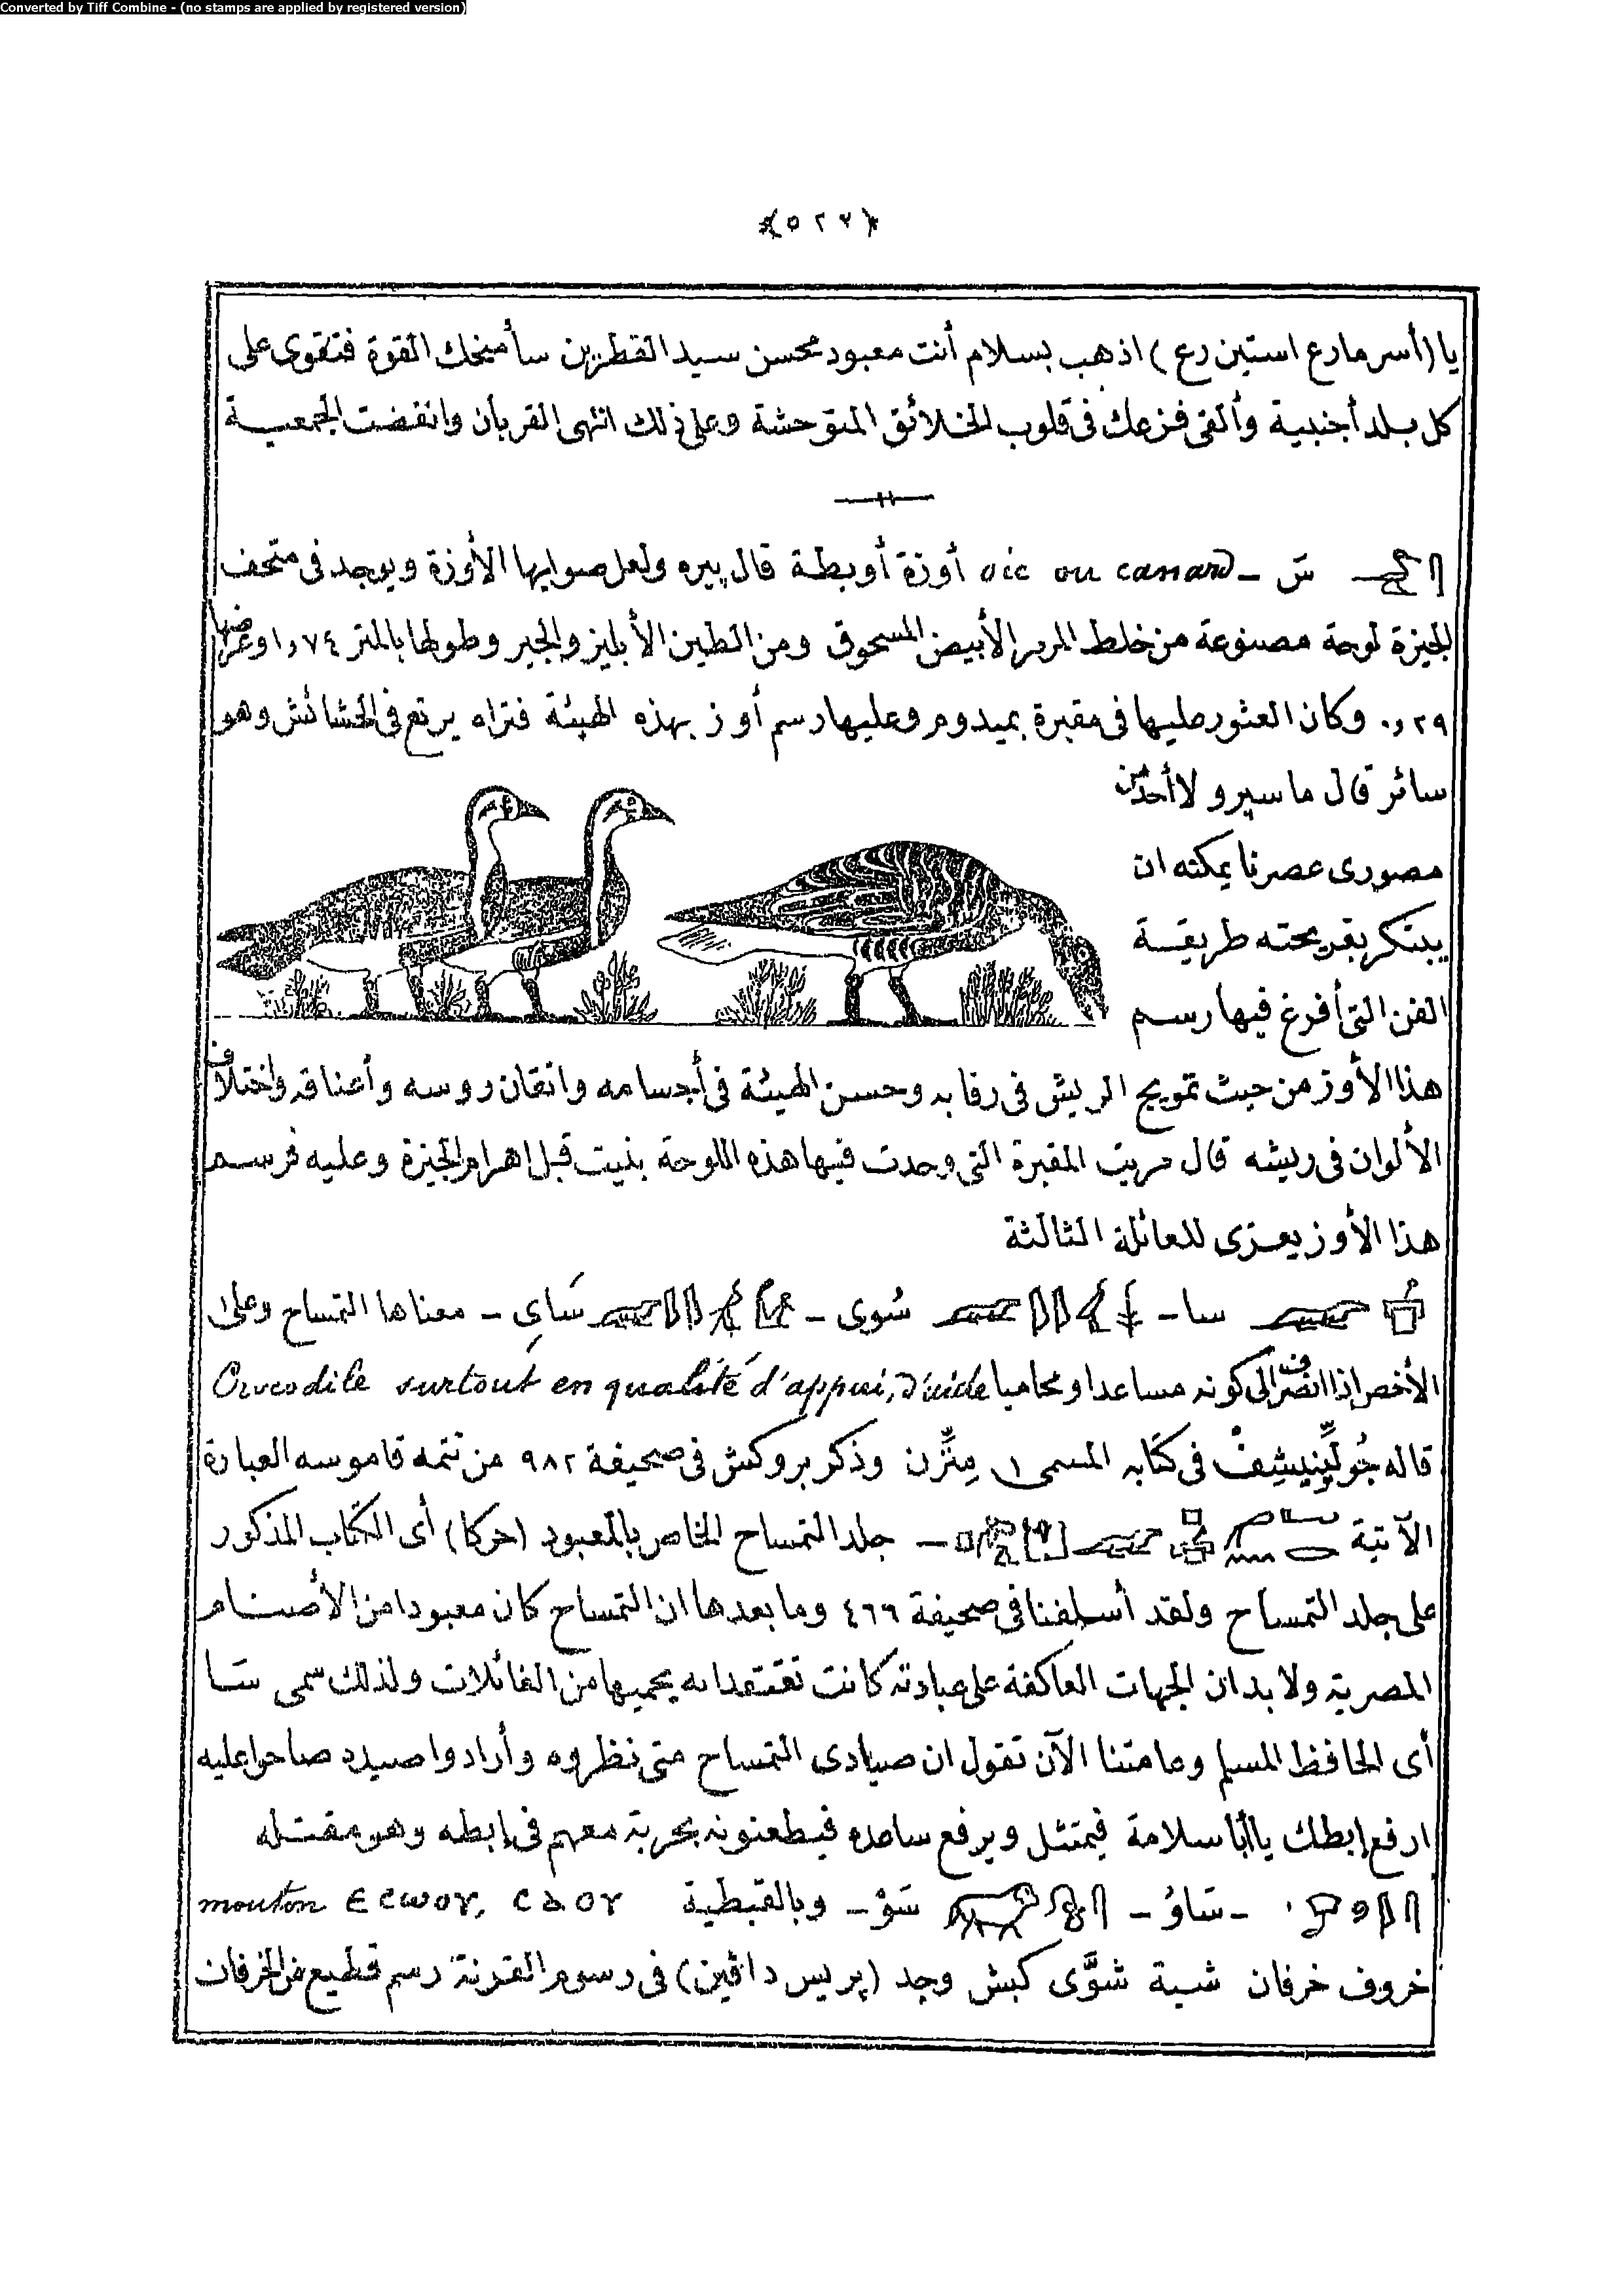 Converted by Tiff Combine - (no stamps are applied by registered version)
﴿٥٢٧﴾
يا (أسر مارع استبن رع) اذهب بسلام أنت معبود محسن سيد القطرين سأمنحك القوة فتقوى على
كل بلد أجنبية وألقى فزعك فى قلوب الخلائق المتوحشة وعلى ذلك انتهى القربان وانفضت الجمعية
سَ ـ oie ou canard أوزة أو بطة قال پيره ولعل صوابها الأوزة ويوجد فى متحف
الجيزة لوحة مصنوعة من خلط المرمر الأبيض المسحوق ومن الطين الأبليز والجير وطولها بالمتر ١٫٧٤ وعرضها
٠٫٢٩ وكان العثور عليها فى مقبرة بميدوم وعليها رسم أوز بهذه الهيئة فتراه يرتع فى الحشائش وهو
سائر قال ماسپرو لا أحد من
مصورى عصرنا يمكنه ان
يبتكر بقريحته طريقة
الفن التى أفرغ فيها رسم
هذا الأوز من حيث تمويج الريش فى رقابه وحسن الهيئة فى أجسامه واتقان روسه وأعناقه واختلاف
الألوان فى ريشه قال مريت المقبرة التى وجدت فيها هذه اللوحة بنيت قبل اهرام الجيزة وعليه فرسم
هذا الأوز يعزى للعائلة الثالثة
سا ـ سُوى ـ سَاىِ ـ معناها التمساح وعلى
الأخص اذا انصرف الى كونه مساعدا ومحاميا Crocodile surtout en qualité d'appui, d'aide
قاله جُولِّنيشِفْ فى كتابه المسمى مِتِّرْن وذكر بروكش فى صحيفة ٩٨٢ من تتمه قاموسه العبارة
الآتية ـ جلد التمساح الخاص بالمعبود (حركا) أى الكتاب المذكور
على جلد التمساح ولقد أسلفنا فى صحيفة ٤٦٦ وما بعدها ان التمساح كان معبودا من الأصنام
المصرية ولا بد ان الجهات العاكفة على عبادته كانت تعتقد انه يحميها من الغائلات ولذلك سمى سَا
أى الحافظ المسلم وعامتنا الآن تقول ان صيادى التمساح متى نظروه وأرادوا صيده صاحوا عليه
ارفع إبطك يا أبا سلامة فيمتثل ويرفع ساعده فيطعنونه بحربة معهم فى إبطه وهو مقتله
ـ سَاوُ ـ سَوْ ـ وبالقبطية ⲉⲥⲱⲟⲩ, ⲥⲁⲟⲩ mouton
خروف خرفان شية شوَّى كبش وجد (پريس داڤين) فى رسوم القرنة رسم قطيع من الخرفان